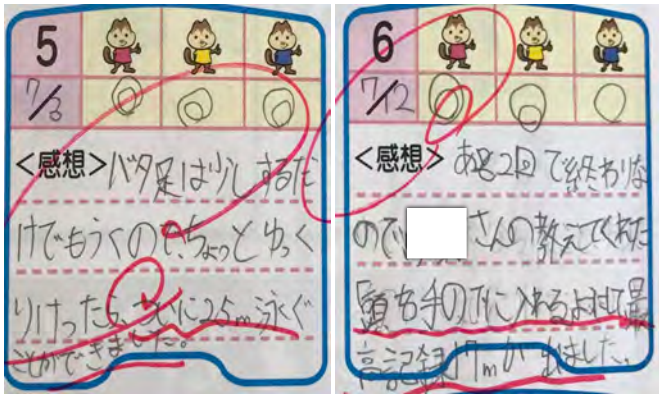 5
7/3
<感想>バタ足は少しするだ
けでもうくので、ちょっとゆっく
りけったら、ついに25m泳ぐ
ことができました。
6
7/12
<感想> あと2回で終わりな
ので、さんの教えてくれた
「頭を手の下に入れる」よ
最
高記録17mが出ました。